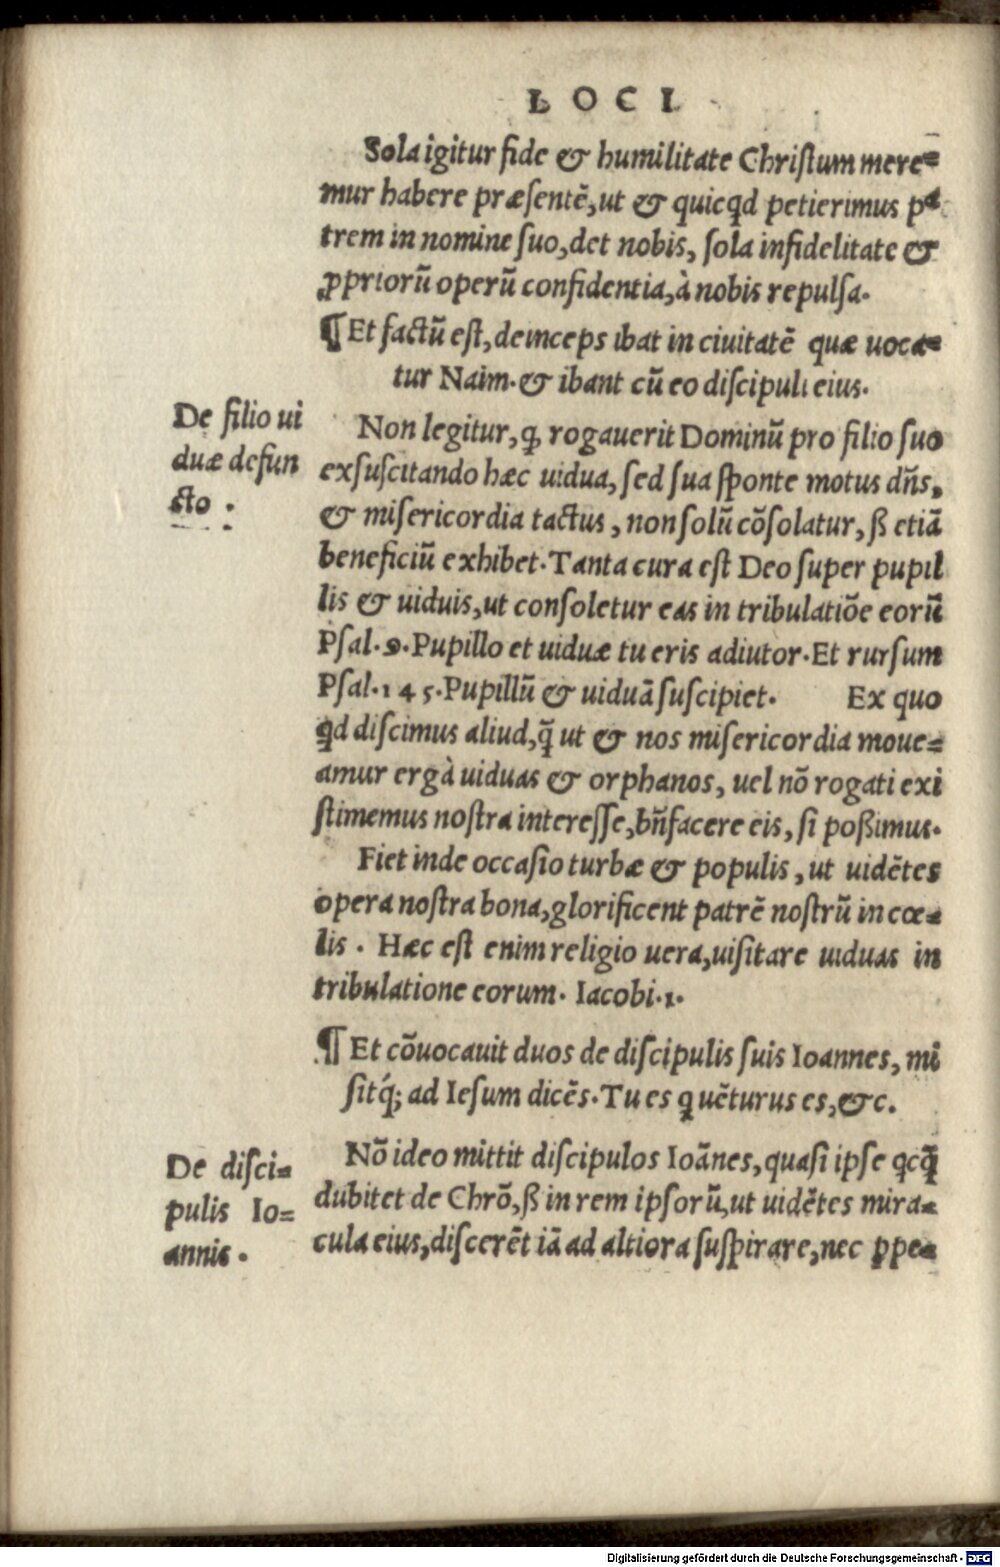 LOCI
Sola igitur fide & humilitate Christum mere=
mur habere præsentē, ut & quicqd petierimus pa
trem in nomine suo, det nobis, sola infidelitate &
ꝓpriorū operū confidentia, à nobis repulsa.
¶ Et factū est, deinceps ibat in ciuitatē quæ uoca=
tur Naim. & ibant cū eo discipuli eius.
De filio ui
duæ defun
cto .
Non legitur, ꝙ rogauerit Dominū pro filio suo
exsuscitando hæc uidua, sed sua sponte motus dñs,
& misericordia tactus, non solū cōsolatur, ß etiā
beneficiū exhibet. Tanta cura est Deo super pupil
lis & uiduis, ut consoletur eas in tribulatiōe eorū
Psal. 9. Pupillo et uiduæ tu eris adiutor. Et rursum
Psal. 145. Pupillū & uiduā suscipiet. Ex quo
qd discimus aliud, q̄ ut & nos misericordia moue=
amur ergà uiduas & orphanos, uel nō rogati exi
stimemus nostra interesse, bñfacere eis, si poßimus.
Fiet inde occasio turbæ & populis, ut uidētes
opera nostra bona, glorificent patrē nostrū in cœ=
lis. Hæc est enim religio uera, uisitare uiduas in
tribulatione eorum. Iacobi. 1.
¶ Et cōuocauit duos de discipulis suis Ioannes, mi
sitq́; ad Iesum dicēs. Tu es q uēturus es, &c.
De disci=
pulis Io=
annis .
Nō ideo mittit discipulos Ioānes, quasi ipse qcq̄
dubitet de Chrō, ß in rem ipsorū, ut uidētes mira=
cula eius, discerēt iā ad altiora suspirare, nec ꝑpe=
Digitalisierung gefördert durch die Deutsche Forschungsgemeinschaft - DFG